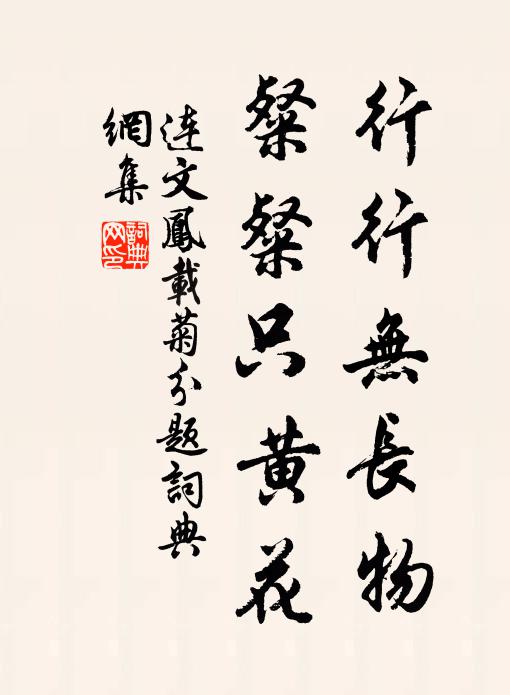 行行無長物
粲粲只黄花
連文鳳載菊分題詞典
網集
詞典
网印